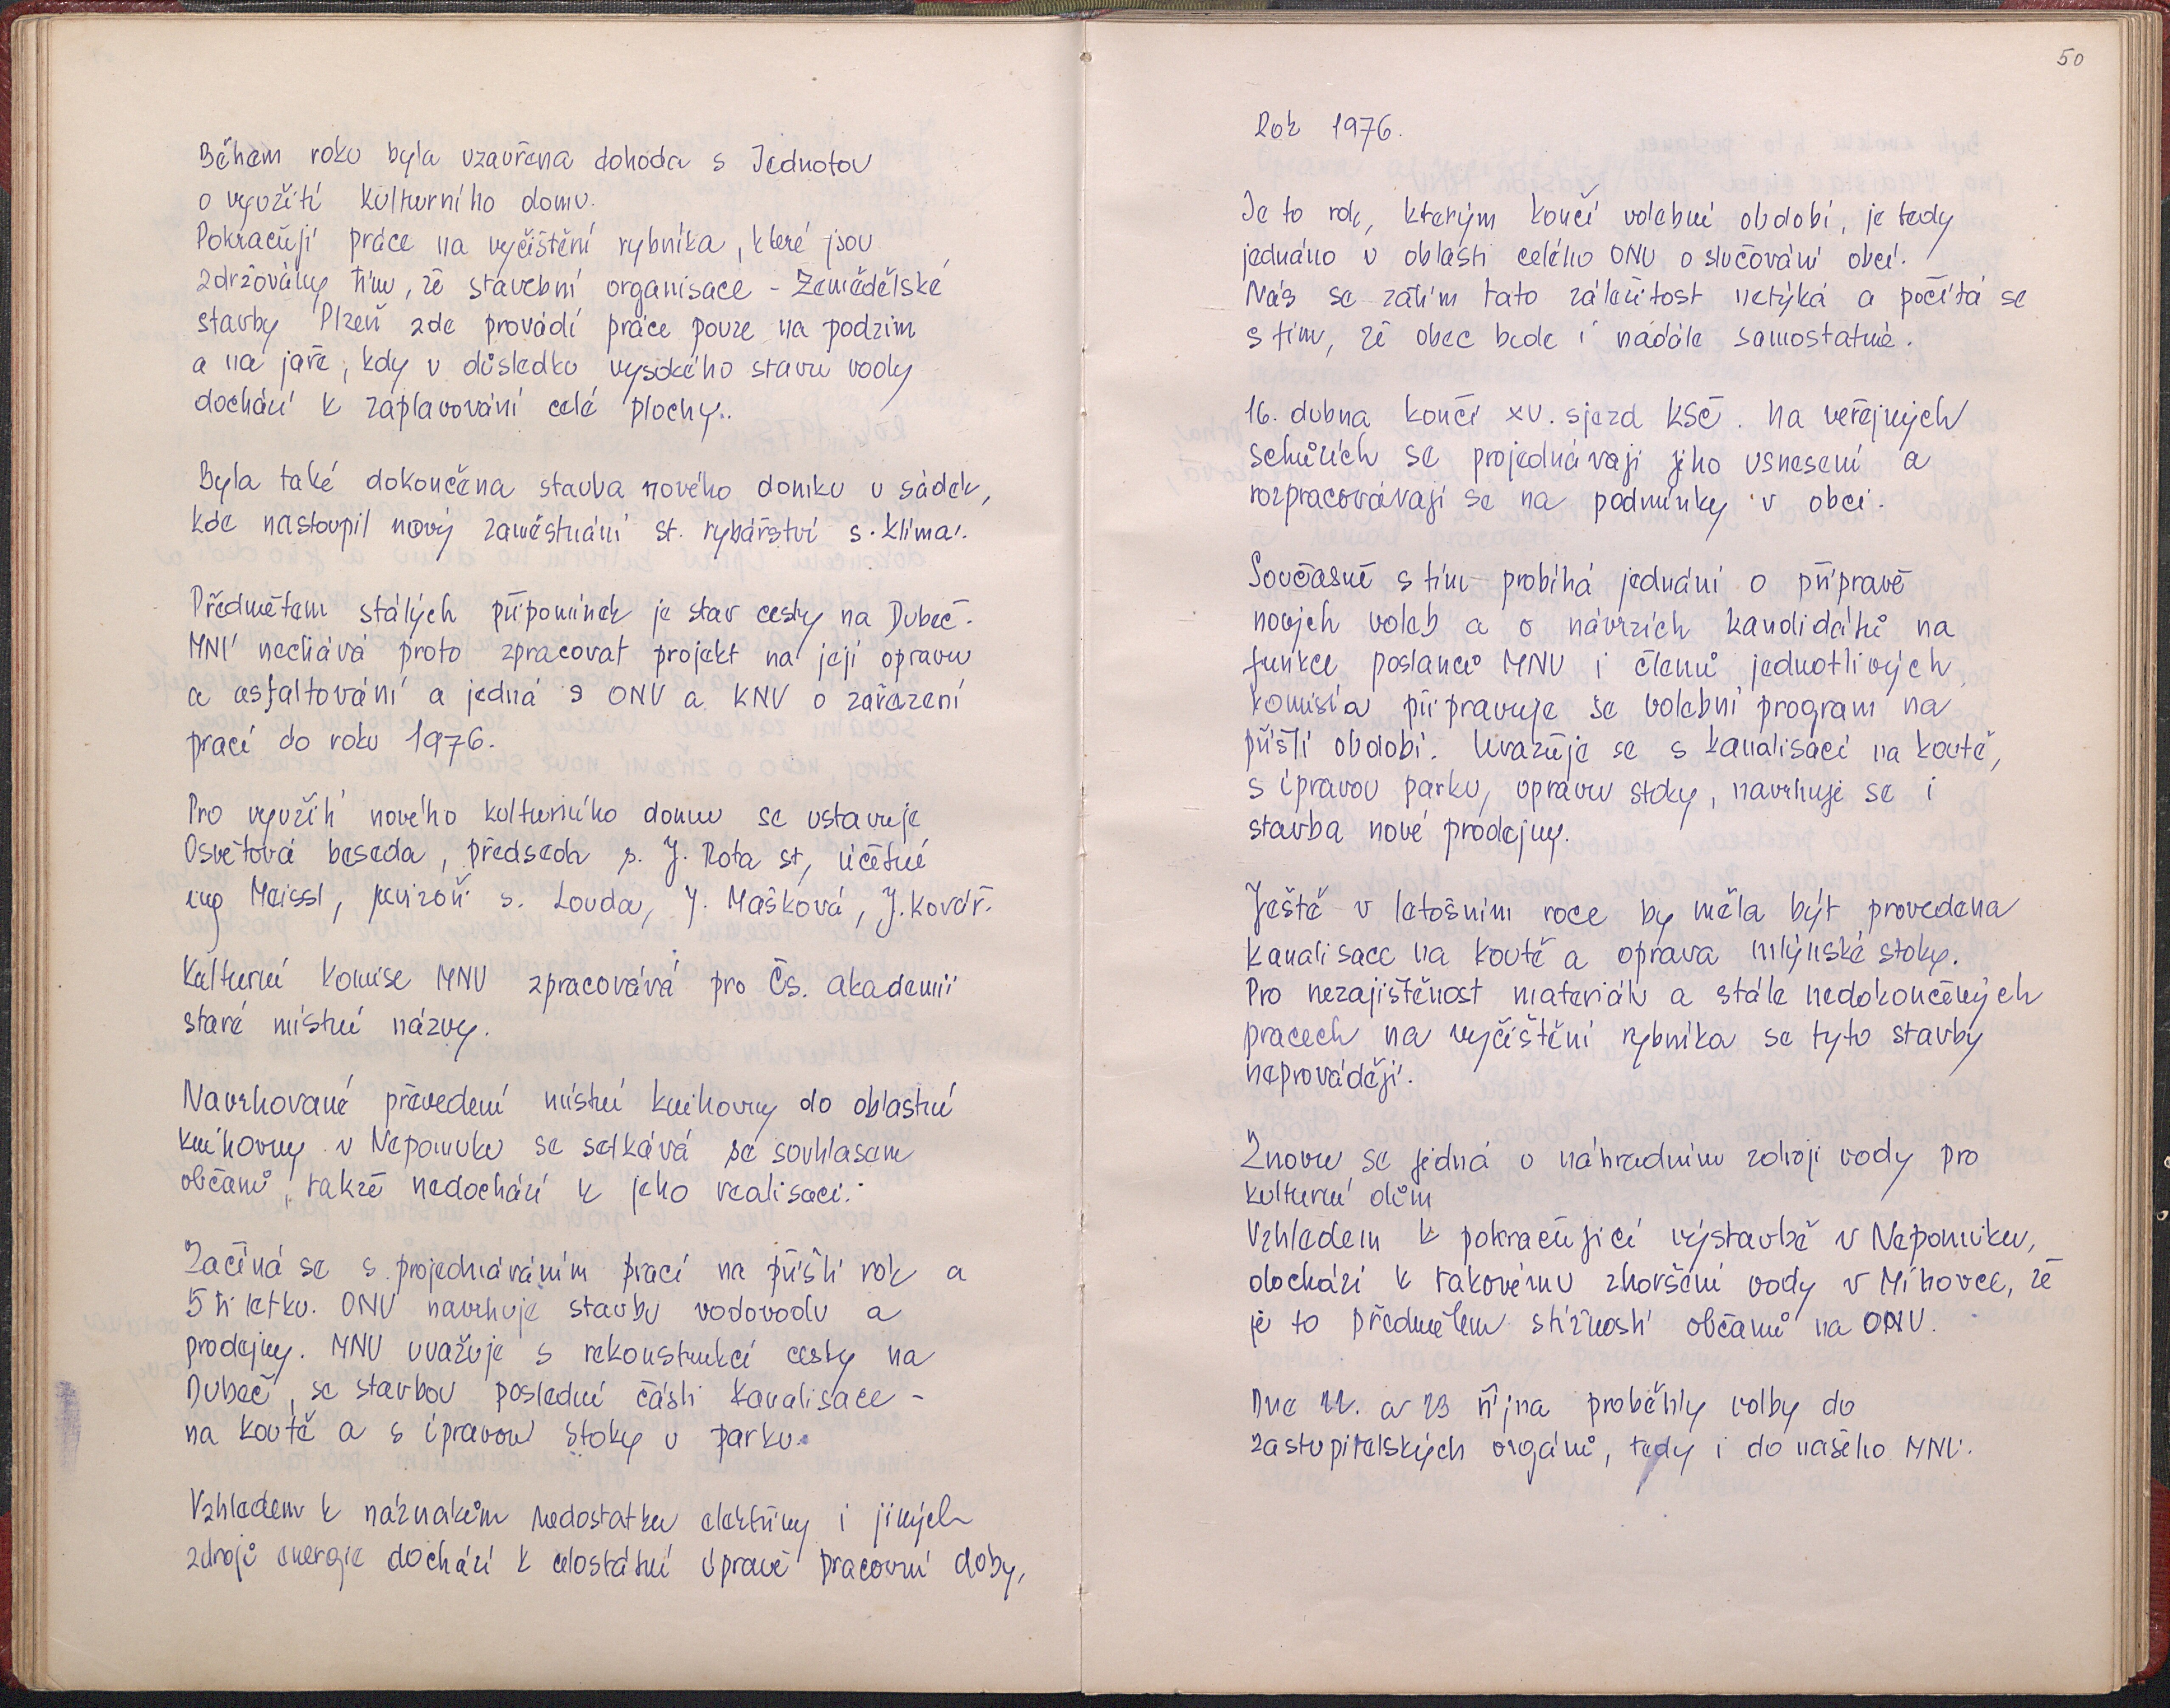 Během roku byla uzavřena dohoda s Jednotou
o využití kulturního domu.
Pokračují práce na vyčištění rybníka, které jsou
zdržovány tím, že stavební organisace - Zemědělské
stavby Plzeň zde provádí práce pouze na podzim
a na jaře, kdy v důsledku vysokého stavu vody
dochází k zaplavování celé plochy..
Byla také dokončena stavba nového domku u sádek,
kde nastoupil nový zaměstnání st. rybářství s. Klíma.
Předmětem stálých připomínek je stav cesty na Dubeč.
MNV nechává proto zpracovat projekt na její opravu
a asfaltování a jedná s ONV a KNV o zařazení
prací do roku 1976.
Pro využití nového kulturního domu se ustavuje
Osvětová beseda, předseda s. J. Rota st, účetní
ing Meissl, revizoři s. Louda, J. Mašková, J. Kovář.
Kulturní komise MNV zpracovává pro Čs. akademii
staré místní názvy.
Navrhované převedení místní knihovny do oblastní
knihovny v Nepomuku se setkává se souhlasem
občanů, takže nedochází k jeho realisaci.
Začíná se s projednáváním prací na příští rok a
5ti letku. ONV navrhuje stavbu vodovodu a
prodejny. MNV uvažuje s rekonstrukcí cesty na
Dubeč, se stavbou poslední části kanalisace -
na koutě a s úpravou stoky v parku.
Vzhledem k náznakům nedostatku elektřiny i jiných
zdrojů energie dochází k celostátní úpravě pracovní doby,
50
Rok 1976.
Je to rok, kterým končí volební období, je tedy
jednáno v oblasti celého ONV o slučování obcí.
Nás se zatím tato záležitost netýká a počítá se
s tím, že obec bude i nadále samostatná.
16. dubna končí XV. sjezd KSČ. Na veřejných
schůzích se projednávají jeho usnesení a
rozpracovávají se na podmínky v obci.
Současně s tím probíhá jednání o přípravě
nových voleb a o návrzích kandidátů na
funkce poslanců MNV i členů jednotlivých
komisí a připravuje se volební program na
příští období. Uvažuje se s kanalisací na koutě,
s úpravou parku, opravu stoky, navrhuje se i
stavba nové prodejny.
Ještě v letošním roce by měla být provedena
kanalisace na koutě a oprava mlýnské stoky.
Pro nezajištěnost materiálu a stále nedokončených
pracech na vyčištění rybníka se tyto stavby
neprovádějí.
Znovu se jedná o náhradním zdroji vody pro
kulturní dům
Vzhledem k pokračující výstavbě v Nepomuku,
dochází k takovému zhoršení vody v Mihovce, že
je to předmětem stížností občanů na ONV.
Dne 22. a 23 října proběhly volby do
zastupitelských orgánů, tedy i do našeho MNV.